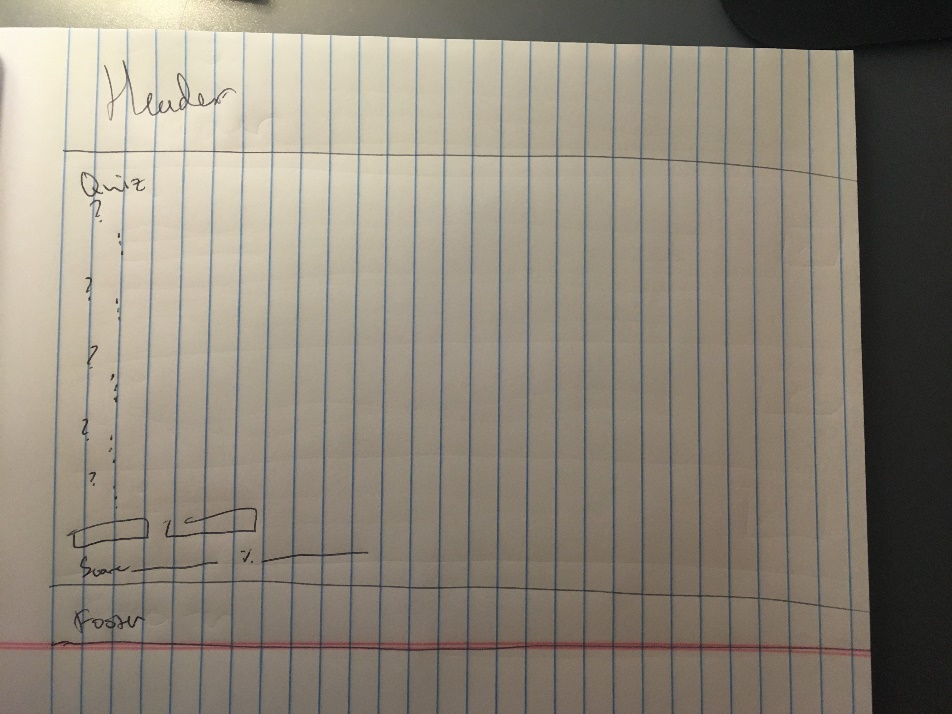 Header
Quiz
?
?
?
?
?
Score %
Footer